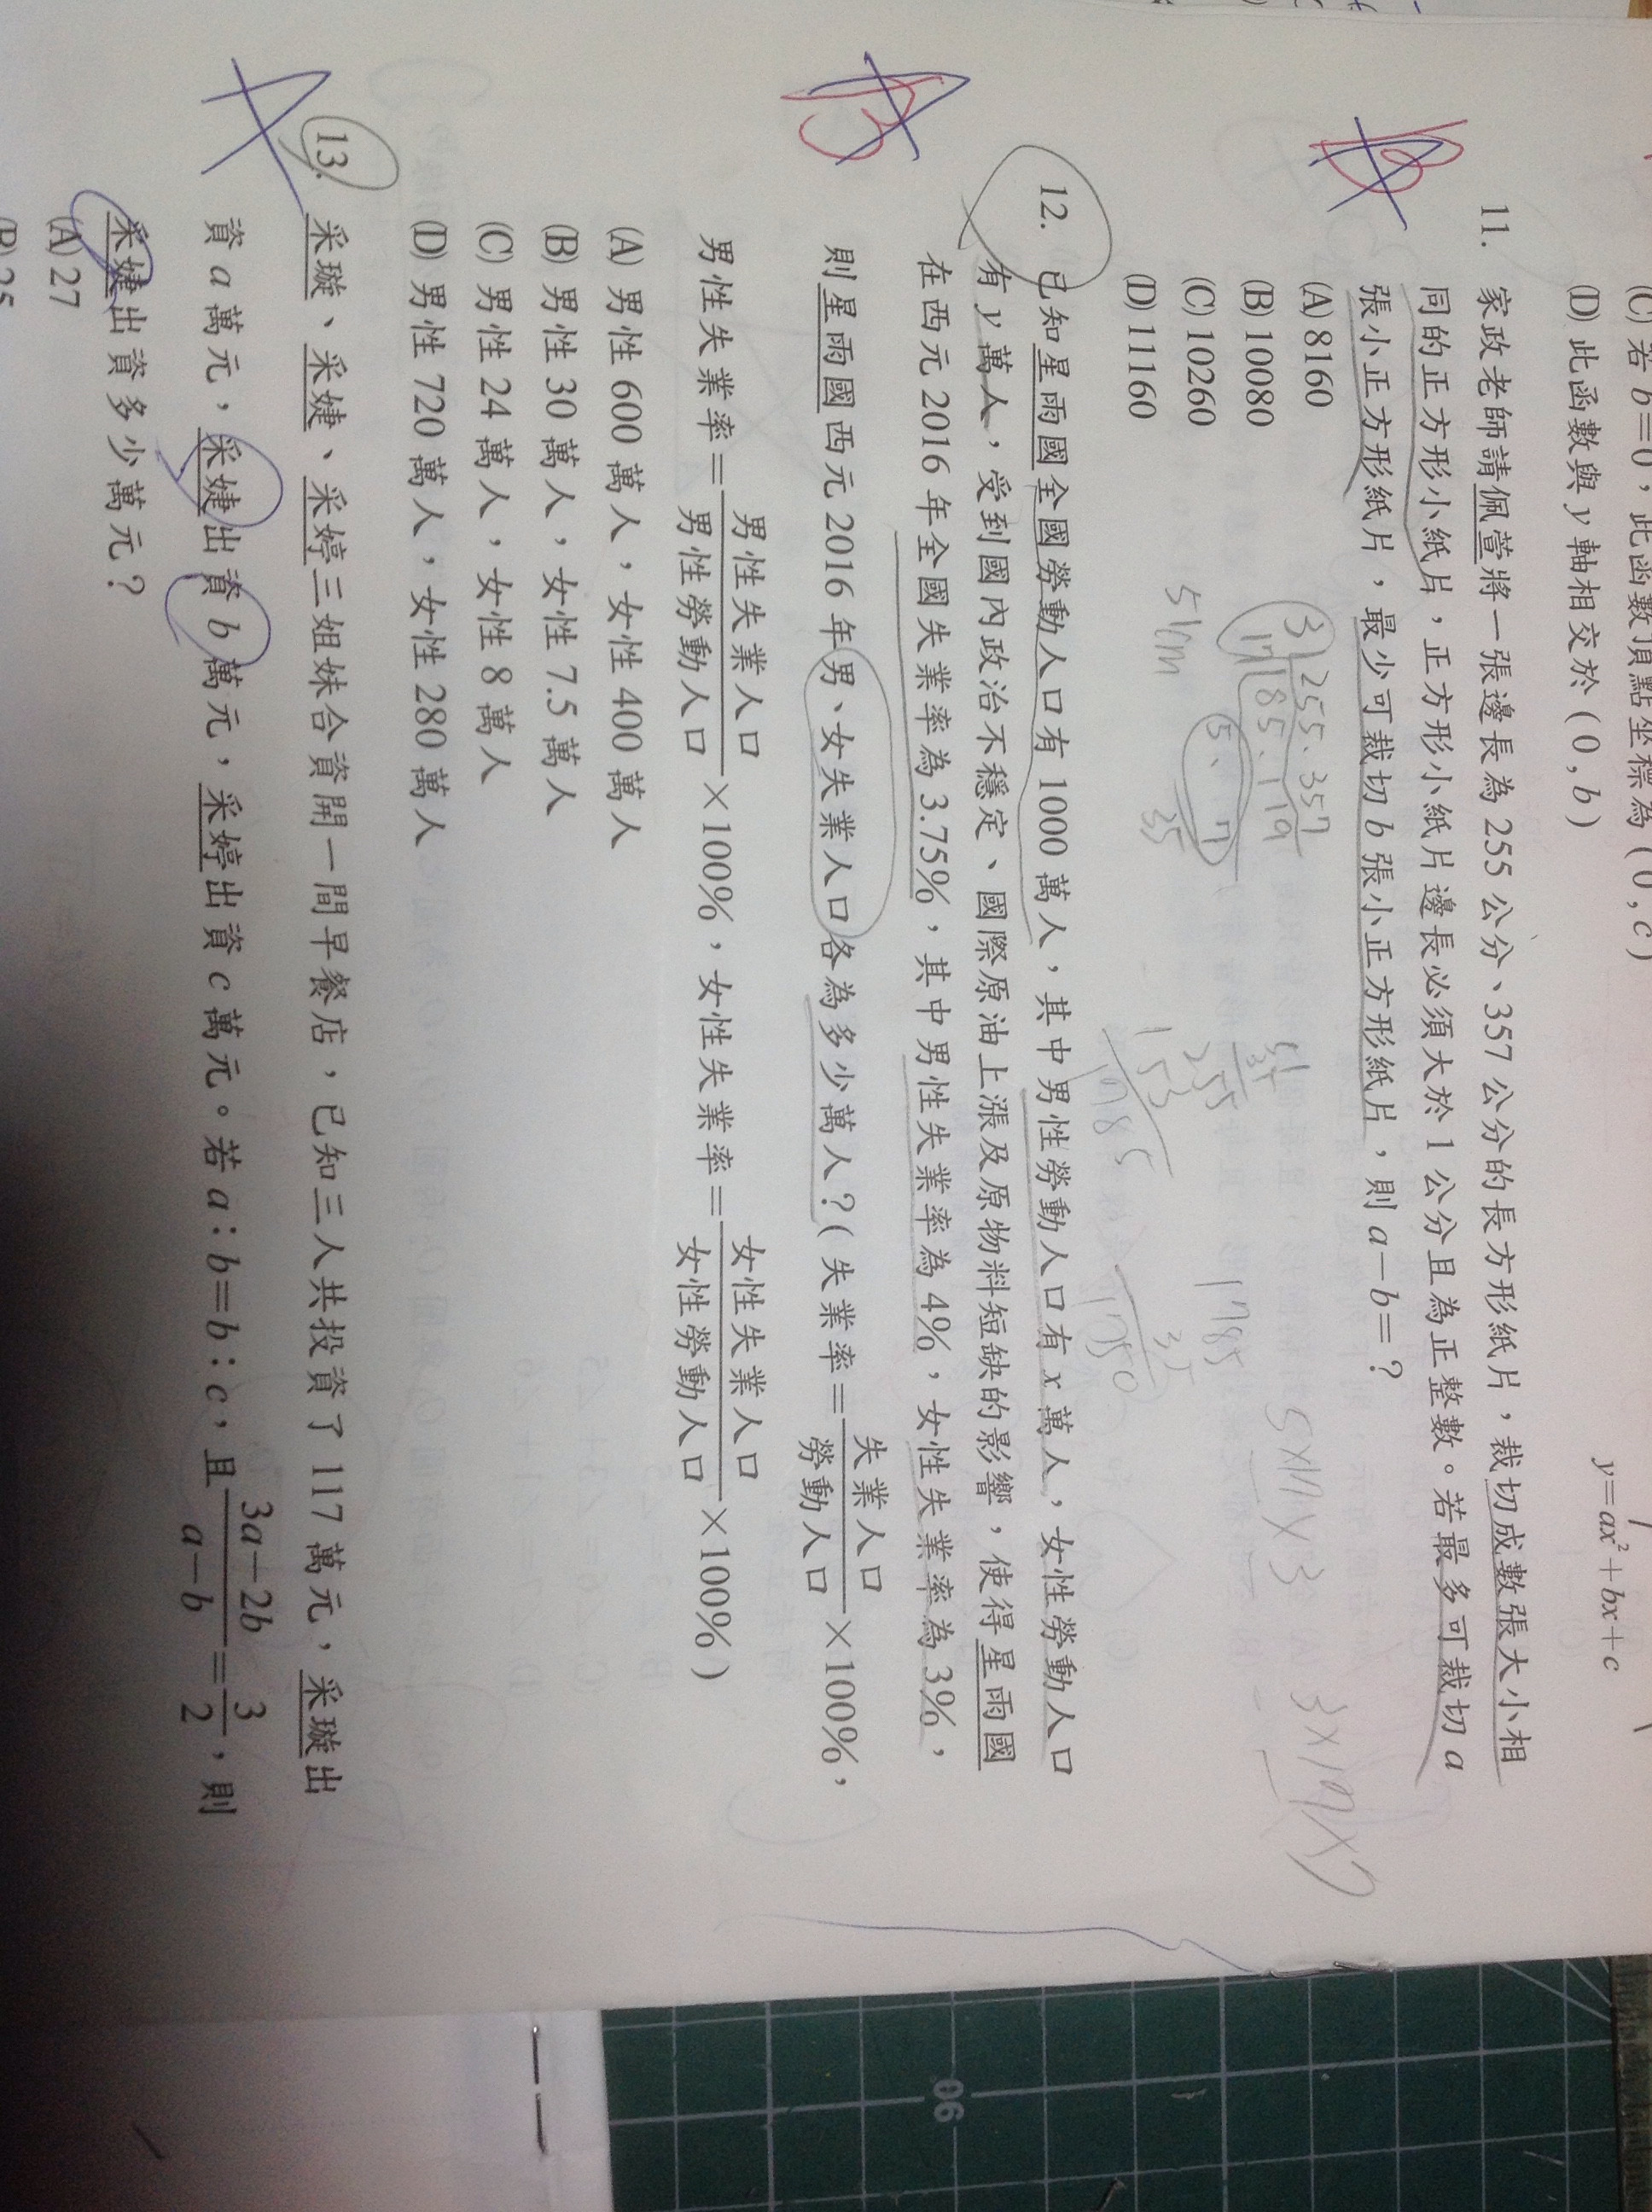 (C) 若 b=0，此函數頂點坐標為 (0,c)
(D) 此函數與 y 軸相交於 (0,b)
y=ax²+bx+c
B
11. 家政老師請佩萱將一張邊長為 255 公分、357 公分的長方形紙片，裁切成數張大小相
同的正方形小紙片，正方形小紙片邊長必須大於 1 公分且為正整數。若最多可裁切 a
張小正方形紙片，最少可裁切 b 張小正方形紙片，則 a－b＝？
(A) 8160
(B) 10080
(C) 10260
(D) 11160
3 255.357
17 85.119
5.7
35
51
35
255
153
1785
1785
35
1750
3×17×7
B
12. 已知星雨國全國勞動人口有 1000 萬人，其中男性勞動人口有 x 萬人，女性勞動人口
有 y 萬人，受到國內政治不穩定、國際原油上漲及原物料短缺的影響，使得星雨國
在西元 2016 年全國失業率為 3.75%，其中男性失業率為 4%，女性失業率為 3%，
則星雨國西元 2016 年男、女失業人口各為多少萬人？(失業率＝失業人口/勞動人口×100%，
男性失業率＝男性失業人口/男性勞動人口×100%，女性失業率＝女性失業人口/女性勞動人口×100%)
(A) 男性 600 萬人，女性 400 萬人
(B) 男性 30 萬人，女性 7.5 萬人
(C) 男性 24 萬人，女性 8 萬人
(D) 男性 720 萬人，女性 280 萬人
A
13. 采璇、采婕、采婷三姐妹合資開一間早餐店，已知三人共投資了 117 萬元，采璇出
資 a 萬元，采婕出資 b 萬元，采婷出資 c 萬元。若 a：b＝b：c，且 3a－2b/a－b＝3/2，則
采婕出資多少萬元？
(A) 27
(B) 25
06